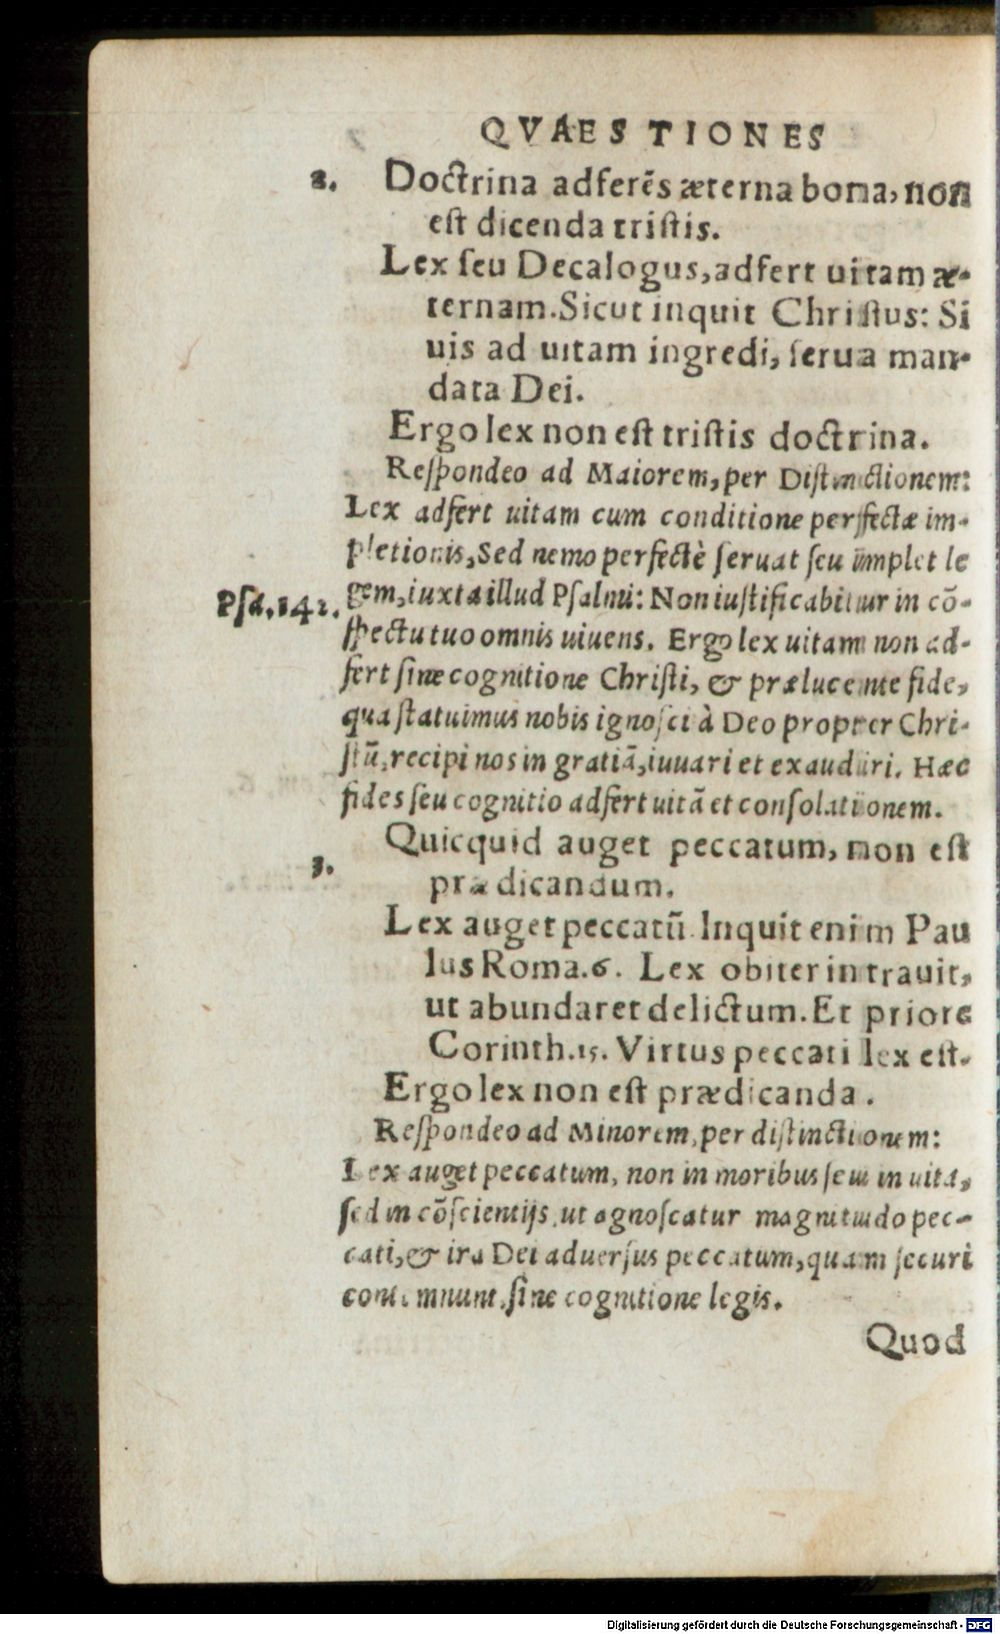 QVAESTIONES
2. Doctrina adferēs æterna bona, non
est dicenda tristis.
Lex seu Decalogus, adfert uitam æ-
ternam. Sicut inquit Christus: Si
uis ad uitam ingredi, serua man-
data Dei.
Ergo lex non est tristis doctrina.
Respondeo ad Maiorem, per Distinctionem:
Lex adfert uitam cum conditione perfectæ im-
pletionis, Sed nemo perfectè seruat seu implet le
Psá. 142. gem, iuxta illud Psalmi: Non iustificabitur in cō-
spectu tuo omnis uiuens. Ergo lex uitam non ad-
fert sine cognitione Christi, & prælucente fide,
qua statuimus nobis ignosci à Deo propter Chri-
stū, recipi nos in gratiā, iuuari et exaudiri. Hæc
fides seu cognitio adfert uitā et consolationem.
3. Quicquid auget peccatum, non est
prædicandum.
Lex auget peccatū. Inquit enim Pau
lus Roma. 6. Lex obiter intrauit,
ut abundaret delictum. Et priore
Corinth. 15. Virtus peccati lex est.
Ergo lex non est prædicanda.
Respondeo ad Minorem, per distinctionem:
Lex auget peccatum, non in moribus seu in uita,
sed in cōscientijs, ut agnoscatur magnitudo pec-
cati, & ira Dei aduersus peccatum, quam securi
contemnunt, sine cognitione legis.
Quod
Digitalisierung gefördert durch die Deutsche Forschungsgemeinschaft - DFG